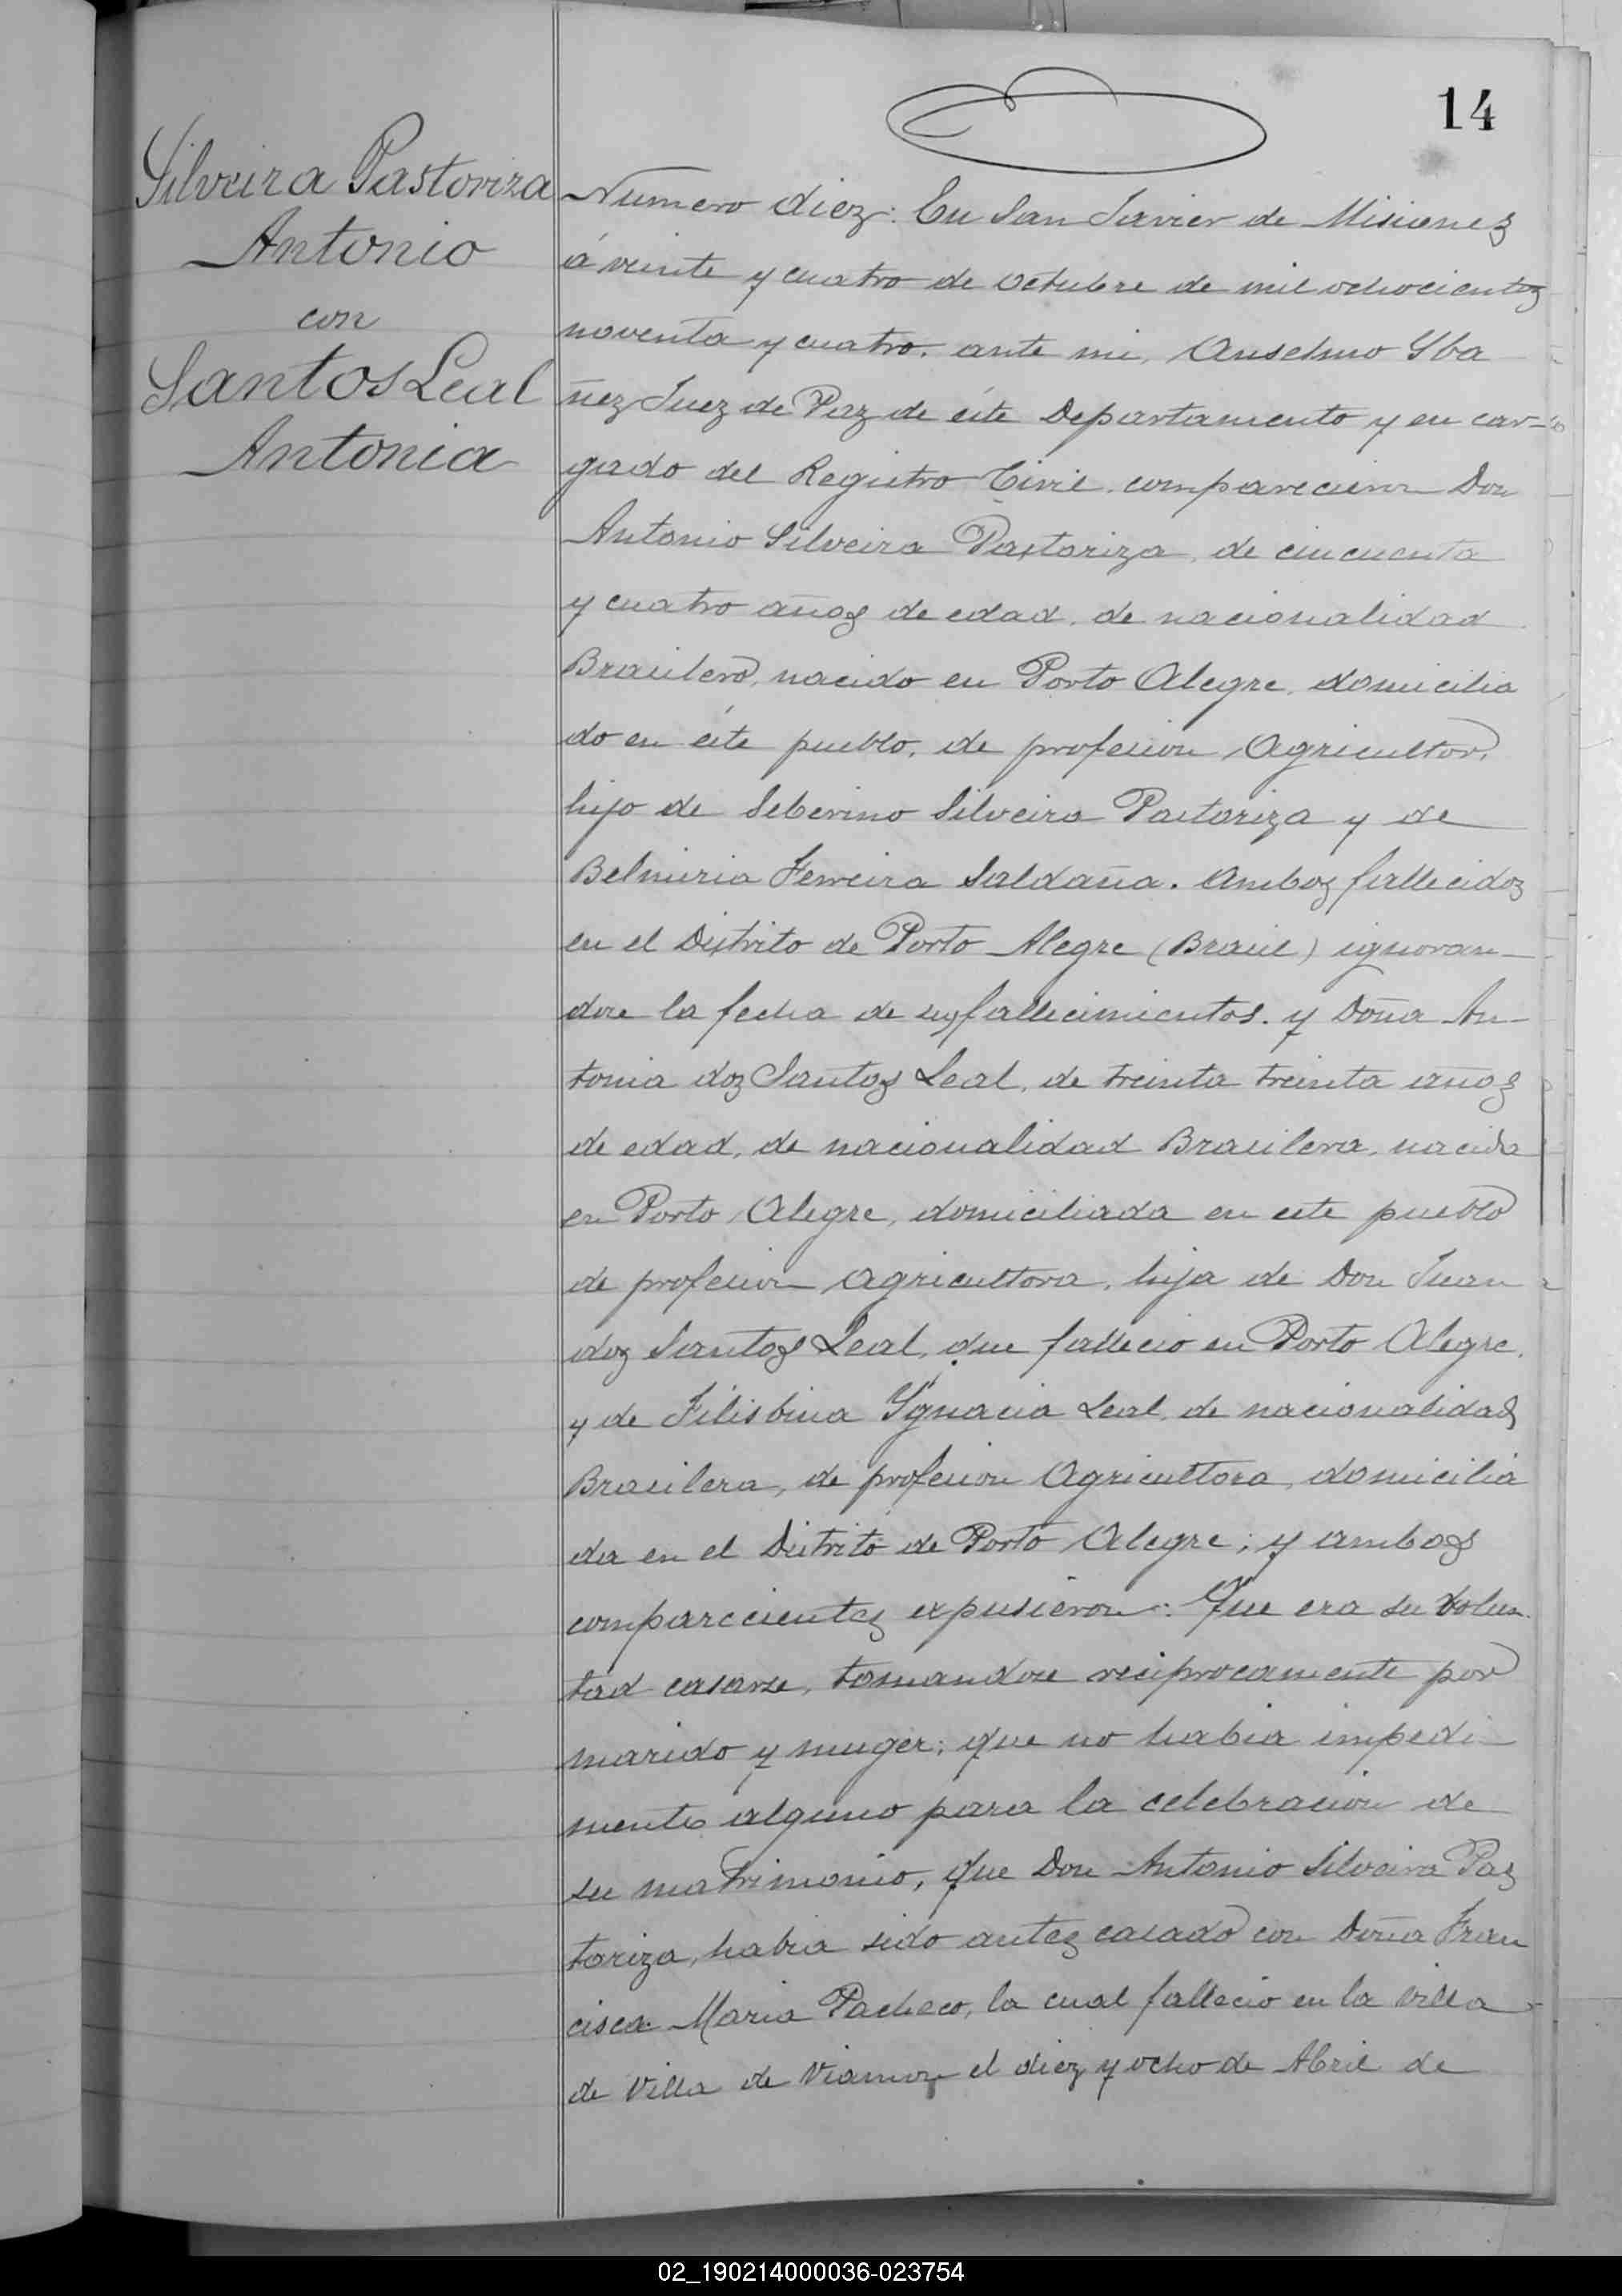 14
Silveira Pastoriza
Antonio
con
Santos Leal
Antonia
Numero diez: En San Javier de Misiones
á veinte y cuatro de Octubre de mil ochocientos
noventa y cuatro. ante mi, Anselmo Yba
ñez Juez de Paz de éste Departamento y en car-
gado del Registro Civil. comparecieron Don
Antonio Silveira Pastoriza, de cincuenta
y cuatro años de edad, de nacionalidad
Brasilero, nacido en Porto Alegre, domicilia
do en éste pueblo, de profesion Agricultor,
hijo de Seberino Silveira Pastoriza y de
Belmiria Ferreira Saldaña. Ambos fallecidos
en el Distrito de Porto Alegre (Brasil) ignoran-
dose la fecha de sus fallecimientos. y Doña An-
tonia dos Santos Leal, de treinta treinta años
de edad, de nacionalidad Brasilera, nacida
en Porto Alegre, domiciliada en este pueblo
de profesion Agricultora, hija de Don Juan
dos Santos Leal, que fallecio en Porto Alegre,
y de Filisbina Ygnacia Leal, de nacionalidad
Brasilera, de profesion Agricultora, domicilia
da en el Distrito de Porto Alegre; y ambos
comparecientes expusieron: Que era su volun
tad casarse, tomandose reciprocamente por
marido y muger; que no habia impedi
mento alguno para la celebracion de
su matrimonio, que Don Antonio Silveira Pas
toriza, habia sido antes casado con Doña Fran
cisca Maria Pacheco, la cual fallecio en la Villa
de Villa de el diez y ocho de Abril de
02_190214000036-023754